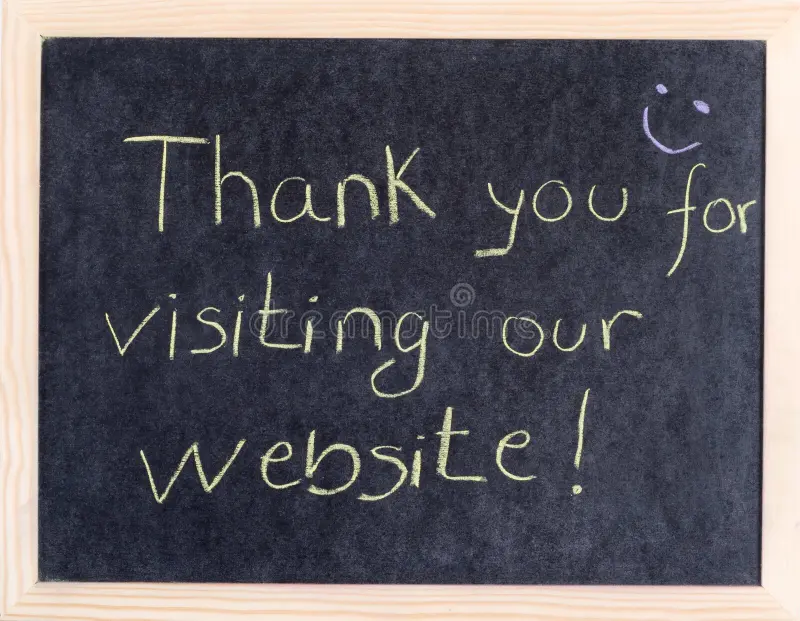 Thank you for
visiting our
website!
dreamstime